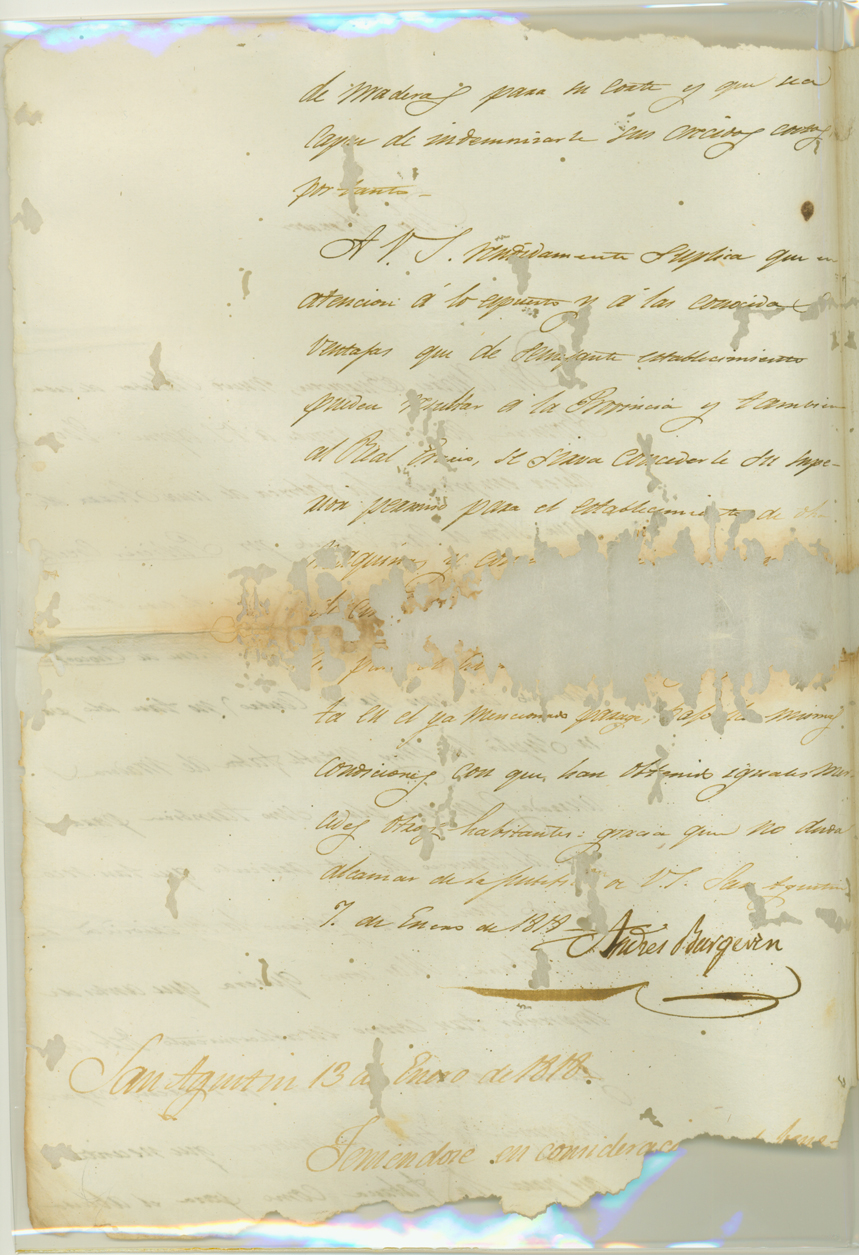 de maderas para su corte y que sea
capaz de indemnisarle sus crecidos costos
por tanto-
A V.S. rendidamente suplica que en
atencion á lo espuesto y á las conocidas
ventajas que de semejante establecimiento
pueden resultar á la Provincia y tambien
al Real Erario, se sirva concederle su supe-
rior permiso para el establecimiento de
maquinas y
ta en el ya mencionado parage, bajo las mismas
condiciones con que han obtenido iguales mer-
cedes otros habitantes: gracia que no duda
alcanzar de la de V.S. San Agustin
7. de Enero de 1818-
Andres Burgevin
San Agustin 13 de Enero de 1818.
Teniendose en consideracion